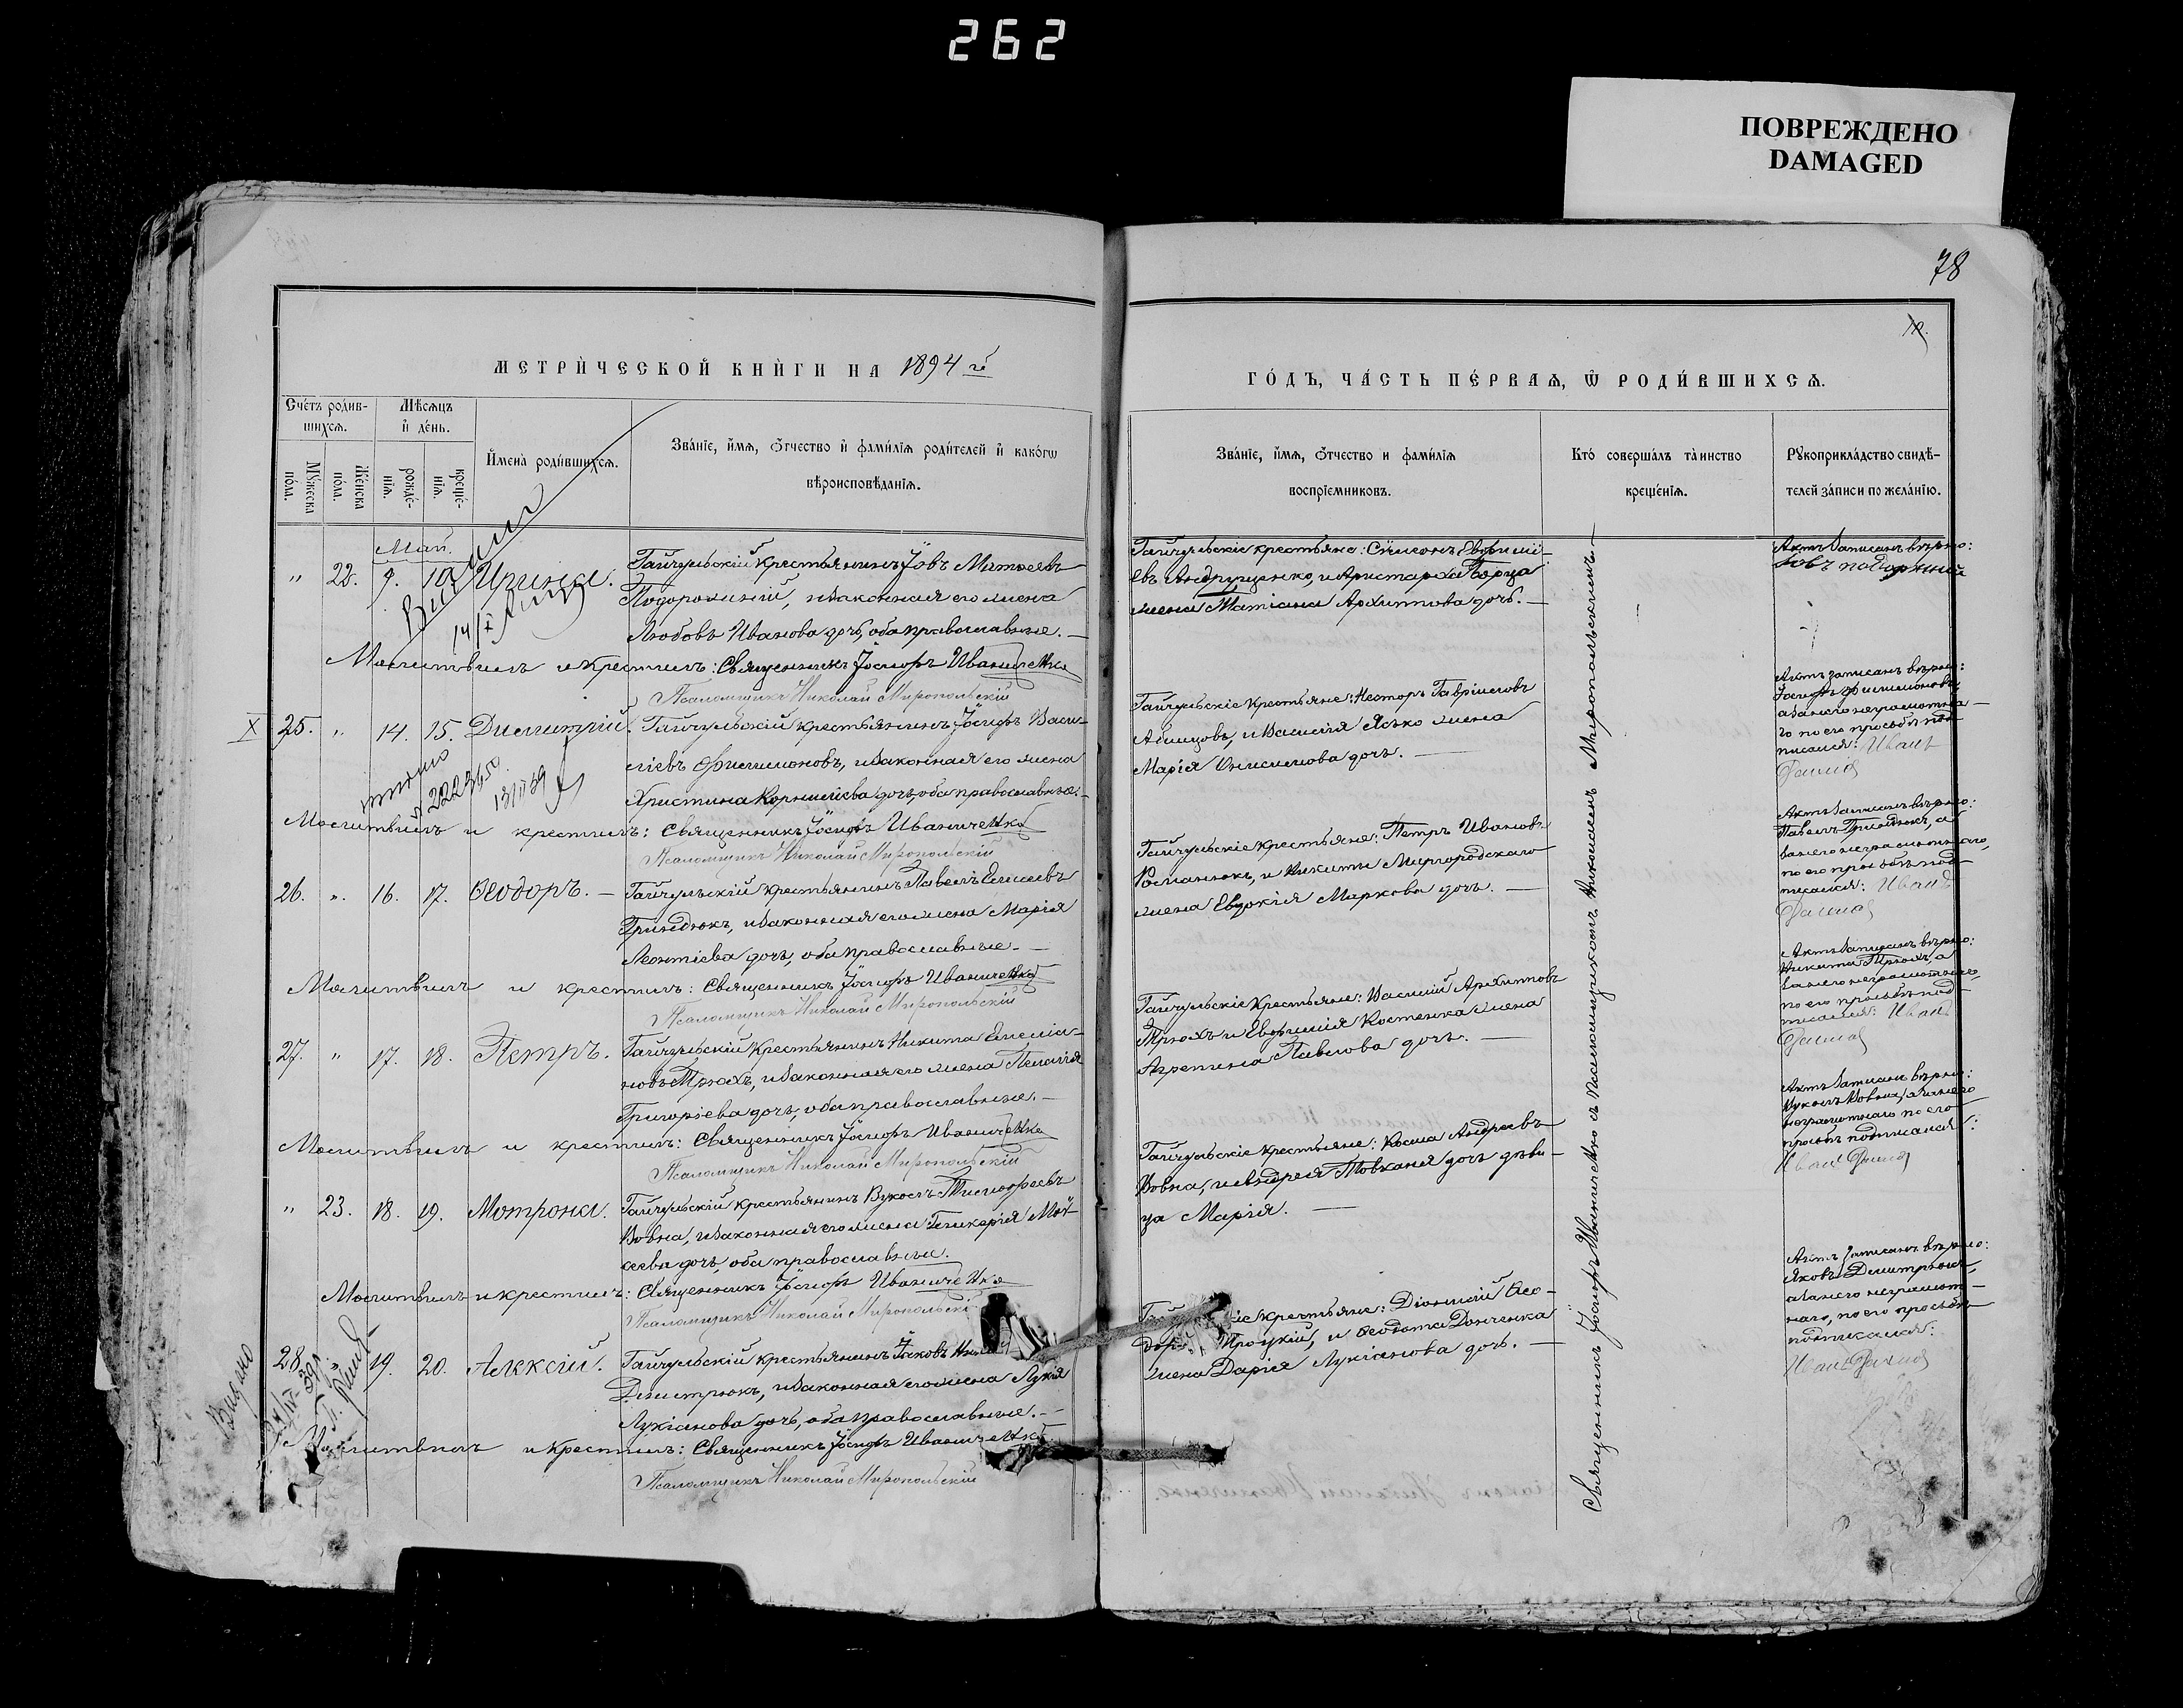 262
ПОВРЕЖДЕНО
DAMAGED
78
МЕТРИЧЕСКОЙ КНИГИ НА 1894 й
ГОДЪ, ЧАСТЬ ПЕРВАЯ, Ѡ РОДИВШИХСЯ.
Счетъ родив-
шихся.
Мѣсяцъ
и день.
Мужеска
пола.
Женска
пола.
рожде-
нія.
креще-
нія.
Имена родившихся.
Званіе, имя, отчество и фамилія родителей и какогѡ
вѣроисповѣданія.
Званіе, имя, отчество и фамилія
воспріемниковъ.
Кто совершалъ таинство
крещенія.
Рукоприкладство свидѣ-
телей записи по желанію.
Май.
" 22. 9. 10. Ирина.
Гайчульскій крестьянинъ Іовъ Матѳеевъ
Подорожній, и законная его жена
Любовь Иванова дочь, оба православные. —
Молитвилъ и крестилъ: Священникъ Іосифъ Иваниченко
Псаломщикъ Николай Миропольскій
Гайчульскіе крестьяне: Сѵмеонъ Евфимі-
евъ Андрущенко, и Аристарха Борца
жена Татіана Архипова дочь. —
Актъ записанъ вѣрно:
Іовъ Подоржній
X 25. " 14. 15. Димитрій.
Гайчульскій крестьянинъ Іосифъ Васи-
ліевъ Филимоновъ, и законная его жена
Христина Корниліева дочь, оба православные. —
Молитвилъ и крестилъ: Священникъ Іосифъ Иваниченко
Псаломщикъ Николай Миропольскій
Гайчульскіе крестьяне: Несторъ Гавріиловъ
и Василія Ясько жена
Марія Онисимова дочь. —
Актъ записанъ вѣрно:
Іосифъ Филимоновъ,
а за него неграмотна-
го по его просьбѣ под-
писался: Иванъ
26. " 16. 17. Ѳеодоръ. —
Гайчульскій крестьянинъ Павелъ Елисеевъ
Гриндюкъ, и законная его жена Марія
Леонтіева дочь, оба православные. —
Молитвилъ и крестилъ: Священникъ Іосифъ Иваниченко
Псаломщикъ Николай Миропольскій
Гайчульскіе крестьяне: Петръ Ивановъ
Романюкъ, и Никиты Миргородскаго
жена Евдокія Маркова дочь. —
Актъ записанъ вѣрно:
Павелъ Гриндюкъ, а
за него неграмотнаго,
по его просьбѣ под-
писался: Иванъ
27. " 17. 18. Петръ.
Гайчульскій крестьянинъ Никита Емеліа-
новъ Трюхъ, и законная его жена Пелагія
Григоріева дочь, оба православные. —
Молитвилъ и крестилъ: Священникъ Іосифъ Иваниченко
Псаломщикъ Николай Миропольскій
Гайчульскіе крестьяне: Василій Архиповъ
Трюхъ и Евфимія Костенка жена
Агрепина Павлова дочь. —
Актъ записанъ вѣрно:
Никита Трюхъ, а
за него неграмотнаго
по его просьбѣ под-
писался: Иванъ
" 23. 18. 19. Мотрона.
Гайчульскій крестьянинъ Вуколъ Тимоѳеевъ
Вовна, и законная его жена Гликерія Моѵ-
сеева дочь, оба православные.
Молитвилъ и крестилъ: Священникъ Іосифъ Иваниченко
Псаломщикъ Николай Миропольскій
Гайчульскіе крестьяне: Косма Андреевъ
Вовна, и Андрея Товканя дочь дѣви-
ца Марія. —
Актъ записанъ вѣрно:
Вуколъ Вовна, а за него
неграмотнаго по его
просьбѣ подписался:
Иванъ
28. " 19. 20. Алексій.
Гайчульскій крестьянинъ Іаковъ
Димитрюкъ, и законная его жена Лукія
Лукіанова дочь, оба православные. —
Молитвилъ и крестилъ: Священникъ Іосифъ Иваниченко
Псаломщикъ Николай Миропольскій
крестьяне: Діонисій Ѳео-
Троцкій, и Ѳеодота Донченка
жена Дарія Лукіанова дочь. —
Актъ записанъ вѣрно:
Яковъ Димитрюкъ,
а за него неграмот-
наго, по его просьбѣ
подписался:
Иванъ
Священникъ Іосифъ Иваниченко съ псаломщикомъ Николаемъ Миропольскимъ. —
Видано